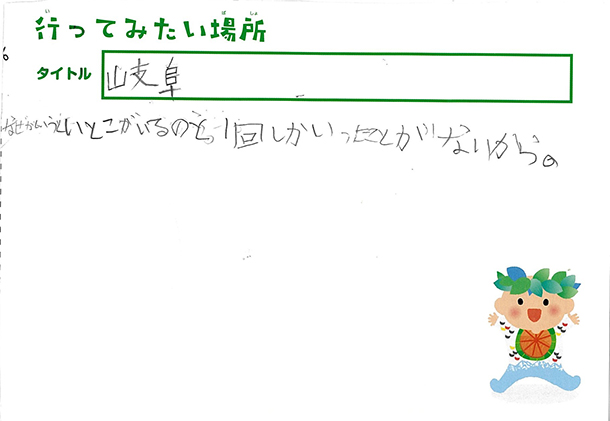 行ってみたい場所
タイトル 岐阜
なぜかというといとこがいるのと、1回しかいったことがないから。